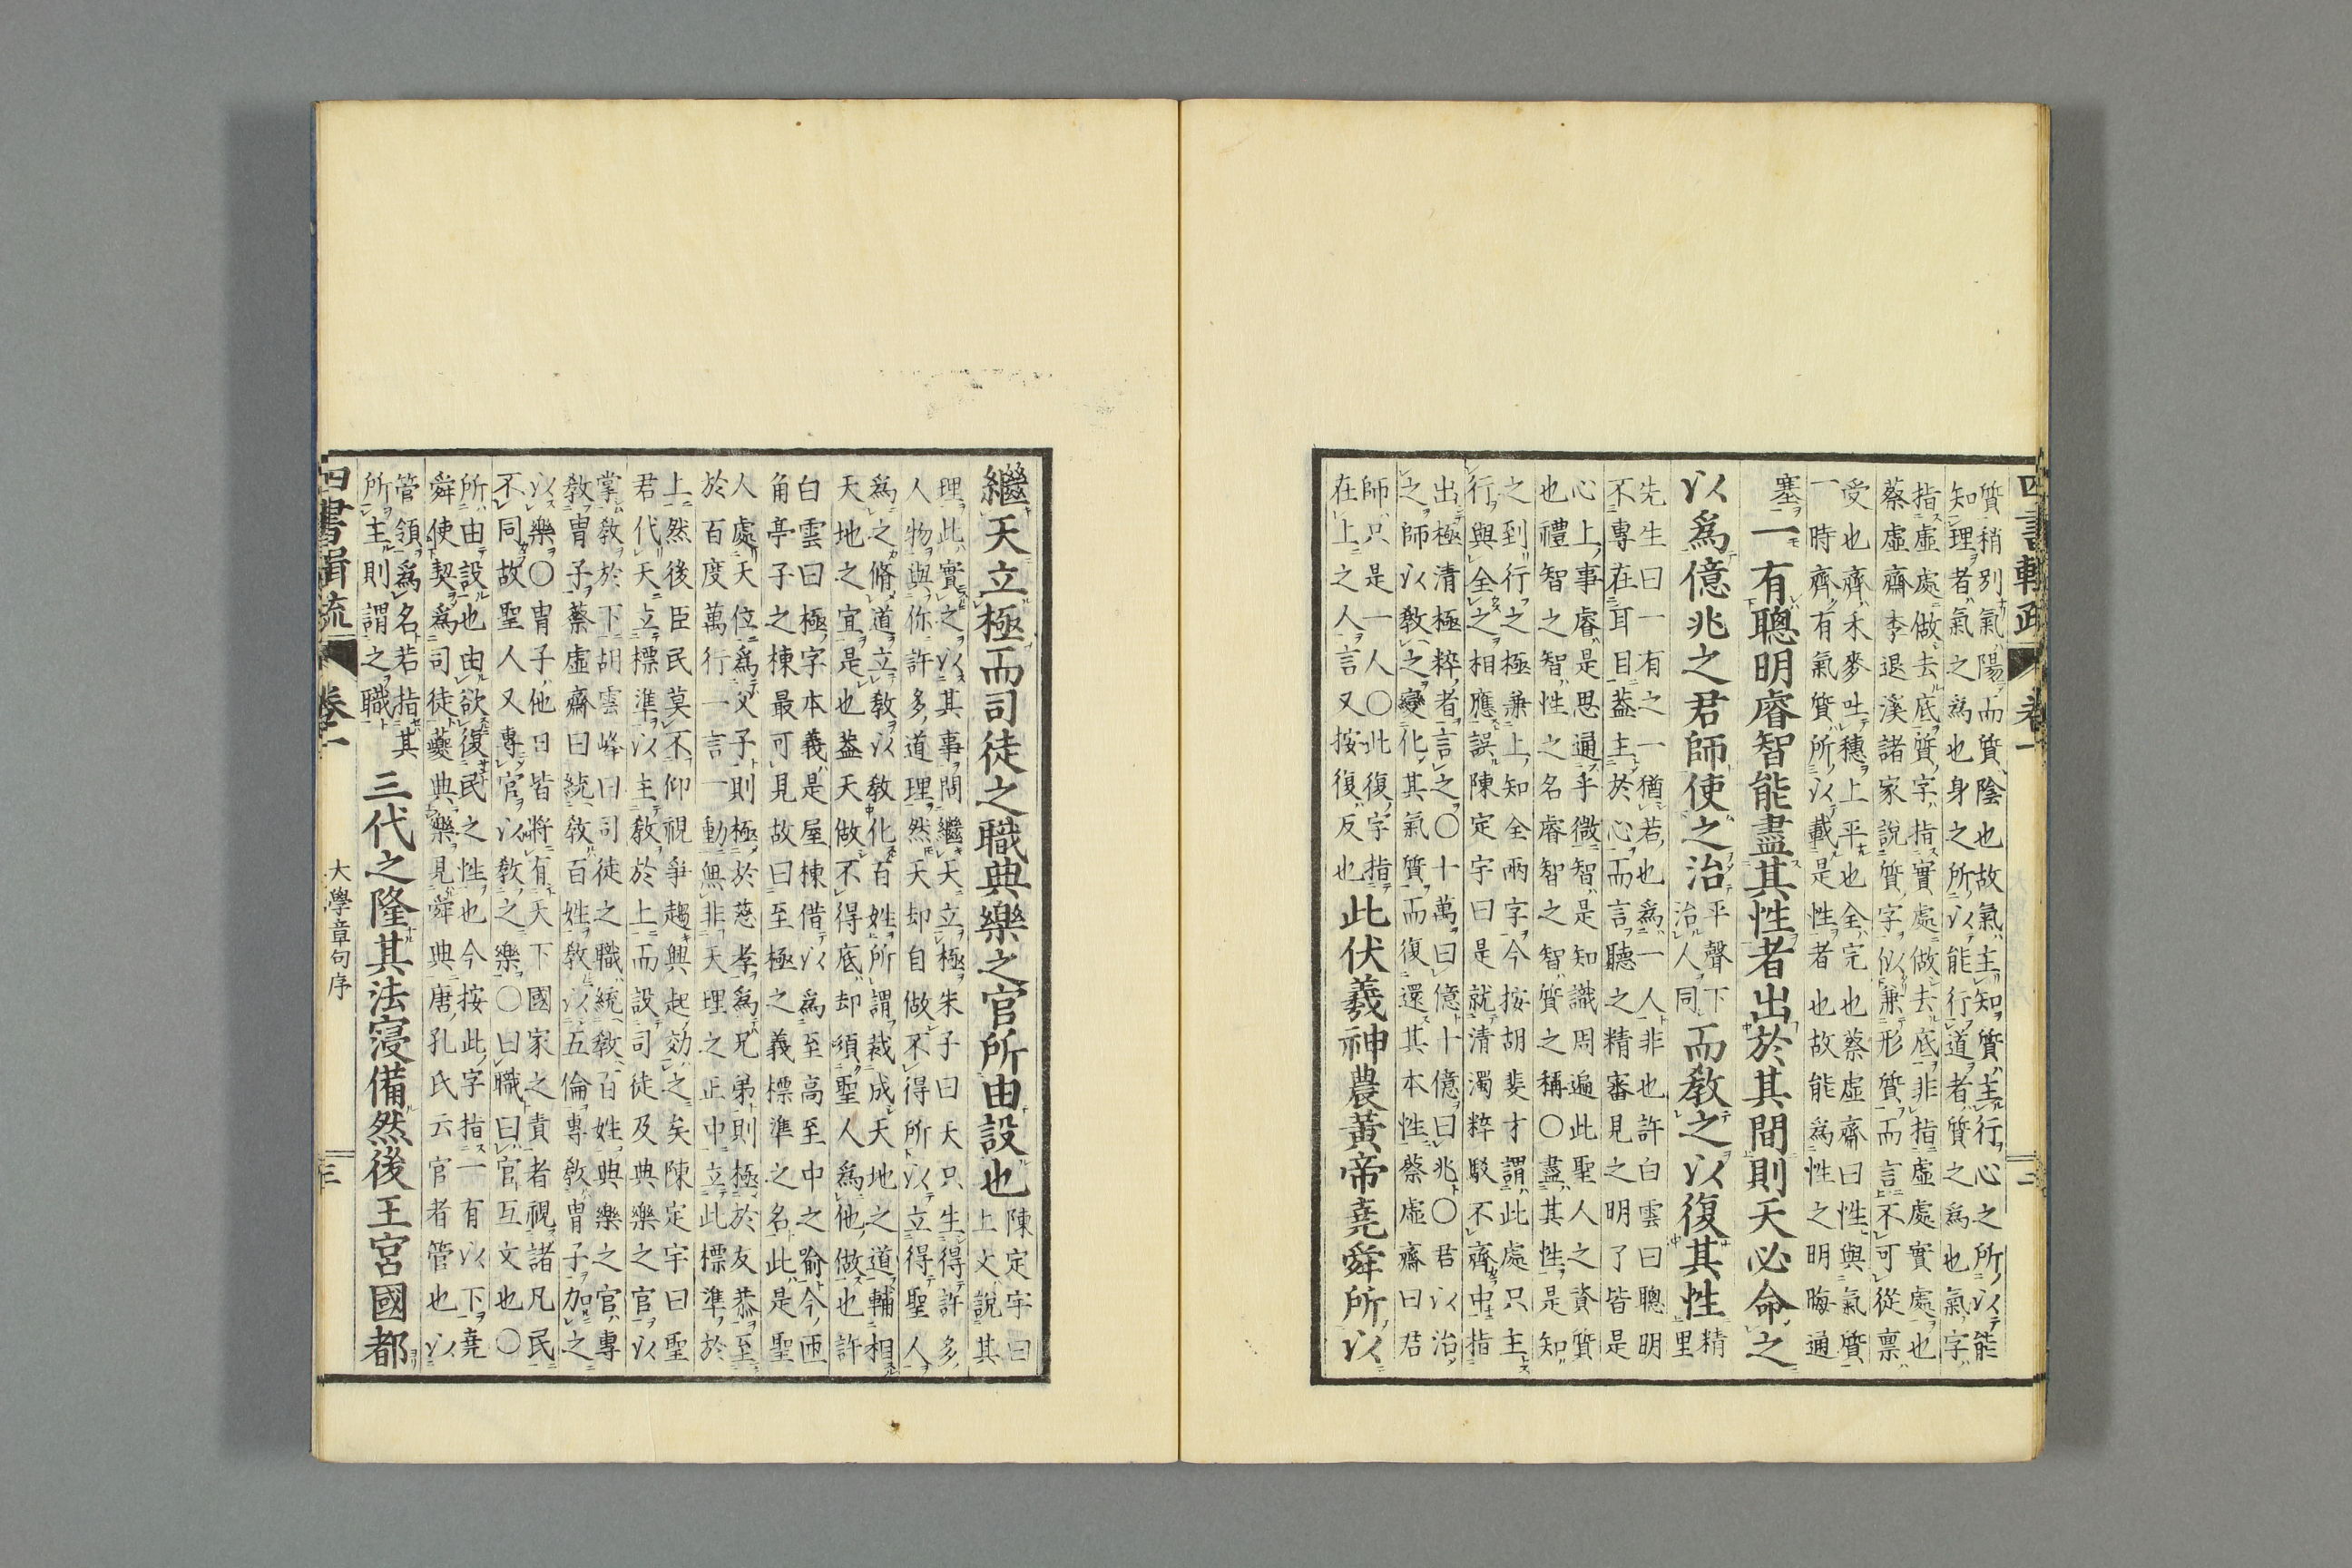 質稍別氣陽而質陰也故氣主知質主行心之所以能
知理者氣之為也身之所以能行道者質之為也氣字
指虛處做去底質字指實處做去底非指虛處實處也
蔡虛齋李退溪諸家說質字似兼形質而言不可從禀
受也齊禾麥吐穗上平也全完也蔡虛齋曰性與氣質
一時齊有氣質所以載是性者也故能為性之明晦通
塞
一有聰明睿智能盡其性者出於其間則天必命之
以爲億兆之君師使之治
平聲下
治人同
而教之以復其性
精
里
先生曰一有之一猶若也為一人非也許白雲曰聰明
不專在耳目蓋主於心而言聽之精審見之明了皆是
心上事睿是思通乎微智是知識周遍此聖人之資質
也禮智之智性之名睿智之智質之稱○盡其性是知
之到行之極兼上知全兩字今按胡斐才謂此處只主
行與全之相應誤陳定宇曰是就清濁粹駁不齊中指
出極清極粹者言之○十萬曰億十億曰兆○君以治
之師以教之變化其氣質而復還其本性蔡虛齋曰君
師只是一人○此復字指
在上之人言又按復反也
此伏羲神農黃帝堯舜所以
四書輯疏
卷一
繼天立極而司徒之職典樂之官所由設也
陳定宇曰
上文說其
理此實之以其事間繼天立極朱子曰天只生得許多
人物與你許多道理然天却自做不得所以立得聖人
為之脩道立教以教化百姓所謂裁成天地之道輔相
天地之宜是也蓋天做不得底却須聖人為他做也許
白雲曰極字本義是屋棟借以為至高至中之喻今匝
角亭子之棟最可見故曰至極之義標準之名此是聖
人處天位為父子則極於慈孝為兄弟則極於友恭至
於百度萬行一言一動無非天理之正中立此標準於
上然後臣民莫不仰視爭趨興起効之矣陳定宇曰聖
君代天立標準以主教於上而設司徒及典樂之官以
掌教於下胡雲峰曰司徒之職統教百姓典樂之官專
教冑子蔡虛齋曰統教百姓教以五倫專教冑子加之
以樂○冑子他日皆將有天下國家之責者視諸凡民
不同故聖人又專官以教之樂○曰職曰官互文也○
所由設也由欲復民之性也今按此字指一有以下堯
舜使契為司徒夔典樂見舜典唐孔氏云官者管也以
管領為名若指其
所主則謂之職
三代之隆其法寖備然後王宮國都
四書輯疏
卷一
大學章句序
三